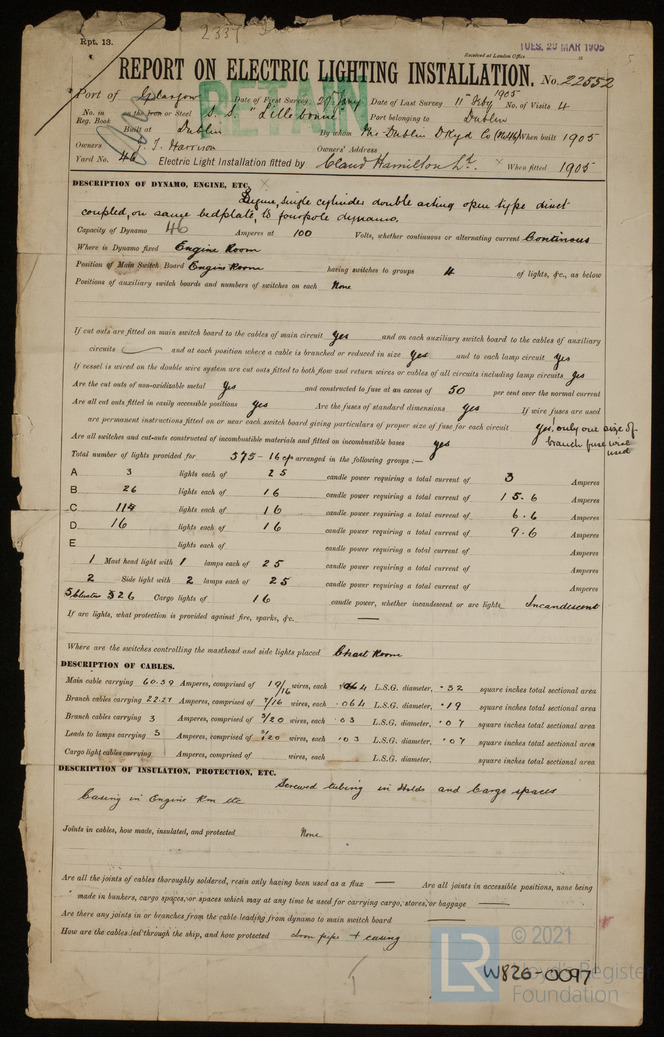 Rpt. 13.
2337
Received at London Office
TUES. 28 MAR 1905
REPORT ON ELECTRIC LIGHTING INSTALLATION. No. 22552
Port of Glasgow Date of First Survey 27th Jany Date of Last Survey 11th Feby 1905 No. of Visits 4
RETAIN
No. in Reg. Book on the Iron or Steel S. S. "Lillebonne" Port belonging to Dublin
Built at Dublin By whom The Dublin Dkyd Co (No 46) When built 1905
Owners T. J. Harrison Owners' Address
Yard No. 46 Electric Light Installation fitted by Claud Hamilton Ltd. When fitted 1905
DESCRIPTION OF DYNAMO, ENGINE, ETC.
Engine, single cylinder double acting open type direct
coupled, on same bedplate, to fourpole dynamo.
Capacity of Dynamo 46 Amperes at 100 Volts, whether continuous or alternating current Continous
Where is Dynamo fixed Engine Room
Position of Main Switch Board Engine Room having switches to groups 4 of lights, &c., as below
Positions of auxiliary switch boards and numbers of switches on each None
If cut outs are fitted on main switch board to the cables of main circuit yes and on each auxiliary switch board to the cables of auxiliary
circuits — and at each position where a cable is branched or reduced in size yes and to each lamp circuit yes
If vessel is wired on the double wire system are cut outs fitted to both flow and return wires or cables of all circuits including lamp circuits yes
Are the cut outs of non-oxidizable metal yes and constructed to fuse at an excess of 50 per cent over the normal current
Are all cut outs fitted in easily accessible positions yes Are the fuses of standard dimensions yes If wire fuses are used
are permanent instructions fitted on or near each switch board giving particulars of proper size of fuse for each circuit yes, only one size of branch fuse wire used
Are all switches and cut-outs constructed of incombustible materials and fitted on incombustible bases yes
Total number of lights provided for 575 - 16 cp arranged in the following groups :—
A 3 lights each of 25 candle power requiring a total current of 3 Amperes
B 26 lights each of 16 candle power requiring a total current of 15.6 Amperes
C 114 lights each of 16 candle power requiring a total current of 6.6 Amperes
D 16 lights each of 16 candle power requiring a total current of 9.6 Amperes
E lights each of candle power requiring a total current of Amperes
1 Mast head light with 1 lamps each of 25 candle power requiring a total current of Amperes
2 Side light with 2 lamps each of 25 candle power requiring a total current of Amperes
5 Clusters 26 Cargo lights of 16 candle power, whether incandescent or arc lights Incandescent
If arc lights, what protection is provided against fire, sparks, &c. —
Where are the switches controlling the masthead and side lights placed Chart Room
DESCRIPTION OF CABLES.
Main cable carrying 60.39 Amperes, comprised of 19/16 wires, each .064 L.S.G. diameter, .32 square inches total sectional area
Branch cables carrying 22.27 Amperes, comprised of 7/16 wires, each .064 L.S.G. diameter, .19 square inches total sectional area
Branch cables carrying 3 Amperes, comprised of 3/20 wires, each .03 L.S.G. diameter, .07 square inches total sectional area
Leads to lamps carrying 3 Amperes, comprised of 3/20 wires, each .03 L.S.G. diameter, .07 square inches total sectional area
Cargo light cables carrying Amperes, comprised of wires, each L.S.G. diameter, square inches total sectional area
DESCRIPTION OF INSULATION, PROTECTION, ETC.
Screwed tubing in Holds and Cargo spaces
Casing in Engine Rm etc
Joints in cables, how made, insulated, and protected None
Are all the joints of cables thoroughly soldered, resin only having been used as a flux — Are all joints in accessible positions, none being
made in bunkers, cargo spaces, or spaces which may at any time be used for carrying cargo, stores, or baggage —
Are there any joints in or branches from the cable leading from dynamo to main switch board —
How are the cables led through the ship, and how protected Iron pipe + casing
LR © 2021
Lloyd's Register
Foundation
W826-0097